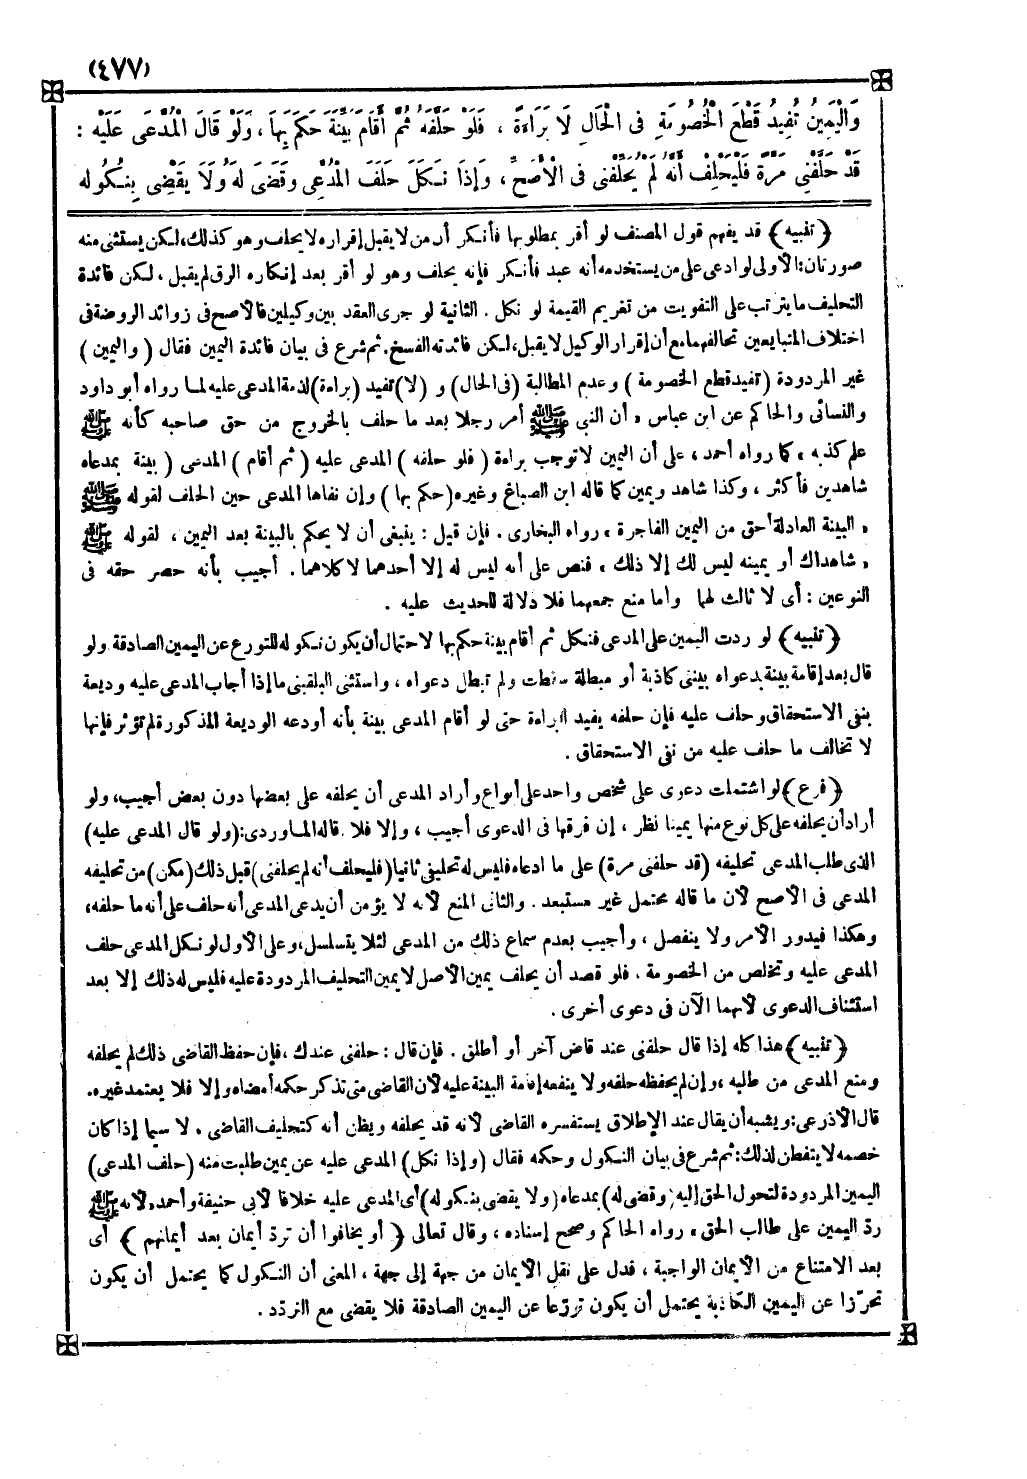 (٤٧٧)
وَالْيَمِينُ تُفِيدُ قَطْعَ الْخُصُومَةِ فِى الْحَالِ لَا بَرَاءَةً ، فَلَوْ حَلَّفَهُ ثُمَّ أَقَامَ بَيِّنَةً حَكَمَ بِهَا ، وَلَوْ قَالَ الْمُدَّعَى عَلَيْهِ :
قَدْ حَلَّفَنِى مَرَّةً فَلْيَحْلِفْ أَنَّهُ لَمْ يُحَلِّفْنِى فِى الْأَصَحِّ ، وَإِذَا نَكَلَ حَلَفَ الْمُدَّعِى وَقَضَى لَهُ وَلَا يَقْضِى بِنُكُولِهِ
﴿ تنبيه ﴾ قد يفهم قول المصنف لو أقر بمطلوبها فأنكر أن من لا يقبل إقراره لا يحلف وهو كذلك ، لكن يستثنى منه
صورتان : الأولى لو ادعى على من يستخدمه أنه عبد فأنكر فإنه يحلف وهو لو أقر بعد إنكاره الرق لم يقبل ، لكن فائدة
التحليف ما يترتب على التفويت من تغريم القيمة لو نكل . الثانية لو جرى العقد بين وكيلين فالأصح فى زوائد الروضة فى
اختلاف المتبايعين تحالفهما مع أن إقرار الوكيل لا يقبل ، لكن فائدته الفسخ . ثم شرع فى بيان فائدة اليمين فقال ( واليمين )
غير المردودة ( تفيد قطع الخصومة ) وعدم المطالبة ( فى الحال ) و ( لا ) تفيد ( براءة ) لذمة المدعى عليه لما رواه أبو داود
والنسائى والحاكم عن ابن عباس « أن النبى ﷺ أمر رجلا بعد ما حلف بالخروج من حق صاحبه كأنه ﷺ
علم كذبه » كما رواه أحمد ، على أن اليمين لا توجب براءة ( فلو حلفه ) المدعى عليه ( ثم أقام ) المدعى ( بينة بمدعاه
شاهدين فأكثر ، وكذا شاهد ويمين كما قاله ابن الصباغ وغيره ( حكم بها ) وإن نفاها المدعى حين الحلف لقوله ﷺ
« البينة العادلة أحق من اليمين الفاجرة » رواه البخارى . فإن قيل : ينبغى أن لا يحكم بالبينة بعد اليمين ، لقوله ﷺ
« شاهداك أو يمينه ليس لك إلا ذلك » فنص على أنه ليس له إلا أحدهما لا كلاهما . أجيب بأنه حصر حقه فى
النوعين : أى لا ثالث لهما وأما منع جمعهما فلا دلالة للحديث عليه .
﴿ تنبيه ﴾ لو ردت اليمين على المدعى فنكل ثم أقام بينة حكم بها لاحتمال أن يكون نكوله للتورع عن اليمين الصادقة ولو
قال بعد إقامة بينة بدعواه بينتى كاذبة أو مبطلة سقطت ولم تبطل دعواه ، واستثنى البلقينى ما إذا أجاب المدعى عليه وديعة
بنفى الاستحقاق وحلف عليه فإن حلفه يفيد البراءة حتى لو أقام المدعى بينة بأنه أودعه الوديعة المذكورة لم تؤثر فإنها
لا تخالف ما حلف عليه من نفى الاستحقاق .
﴿ فرع ﴾ لو اشتملت دعوى على شخص واحد على أنواع وأراد المدعى أن يحلفه على بعضها دون بعض أجيب ، ولو
أراد أن يحلفه على كل نوع منها يمينا نظر ، إن فرقها فى الدعوى أجيب ، وإلا فلا قاله الماوردى : ( ولو قال المدعى عليه )
الذى طلب المدعى تحليفه ( قد حلفنى مرة ) على ما ادعاه فليس له تحليفى ثانيا ( فليحلف أنه لم يحلفنى ) قبل ذلك ( مكن ) من تحليفه
المدعى فى الأصح لأن ما قاله محتمل غير مستبعد . والثانى المنع لأنه لا يؤمن أن يدعى المدعى أنه حلف على أنه ما حلفه ،
وهكذا فيدور الأمر ولا ينفصل ، وأجيب بعدم سماع ذلك من المدعى لئلا يتسلسل ، وعلى الأول لو نكل المدعى حلف
المدعى عليه وتخلص من الخصومة . فلو قصد أن يحلف يمين الأصل لا يمين التحليف المردودة عليه فليس له ذلك إلا بعد
استئناف الدعوى لأنهما الآن فى دعوى أخرى .
﴿ تنبيه ﴾ هذا كله إذا قال حلفنى عند قاض آخر أو أطلق . فإن قال : حلفنى عندك ، فإن حفظ القاضى ذلك لم يحلفه
ومنع المدعى من طلبه ، وإن لم يحفظه حلفه ولا ينفعه إقامة البينة عليه لأن القاضى متى تذكر حكمه أمضاه وإلا فلا يعتمد غيره .
قال الأذرعى : ويشبه أن يقال عند الإطلاق يستفسره القاضى لأنه قد يحلفه ويظن أنه كتحليف القاضى . لا سيما إذا كان
خصمه لا يتفطن لذلك : ثم شرع فى بيان النكول وحكمه فقال ( وإذا نكل ) المدعى عليه عن يمين طلبت منه ( حلف المدعى )
اليمين المردودة لتحول الحق إليه ( وقضى له ) بمدعاه ( ولا يقضى بنكوله ) أى المدعى عليه خلافا لأبى حنيفة وأحمد « لأنه ﷺ
ردّ اليمين على طالب الحق » رواه الحاكم وصحح إسناده ، وقال تعالى ﴿ أو يخافوا أن تردّ أيمان بعد أيمانهم ﴾ أى
بعد الامتناع من الأيمان الواجبة ، فدل على نقل الأيمان من جهة إلى جهة ، المعنى أن النكول كما يحتمل أن يكون
تحرّزا عن اليمين الكاذبة يحتمل أن يكون تورّعا عن اليمين الصادقة فلا يقضى مع التردّد .